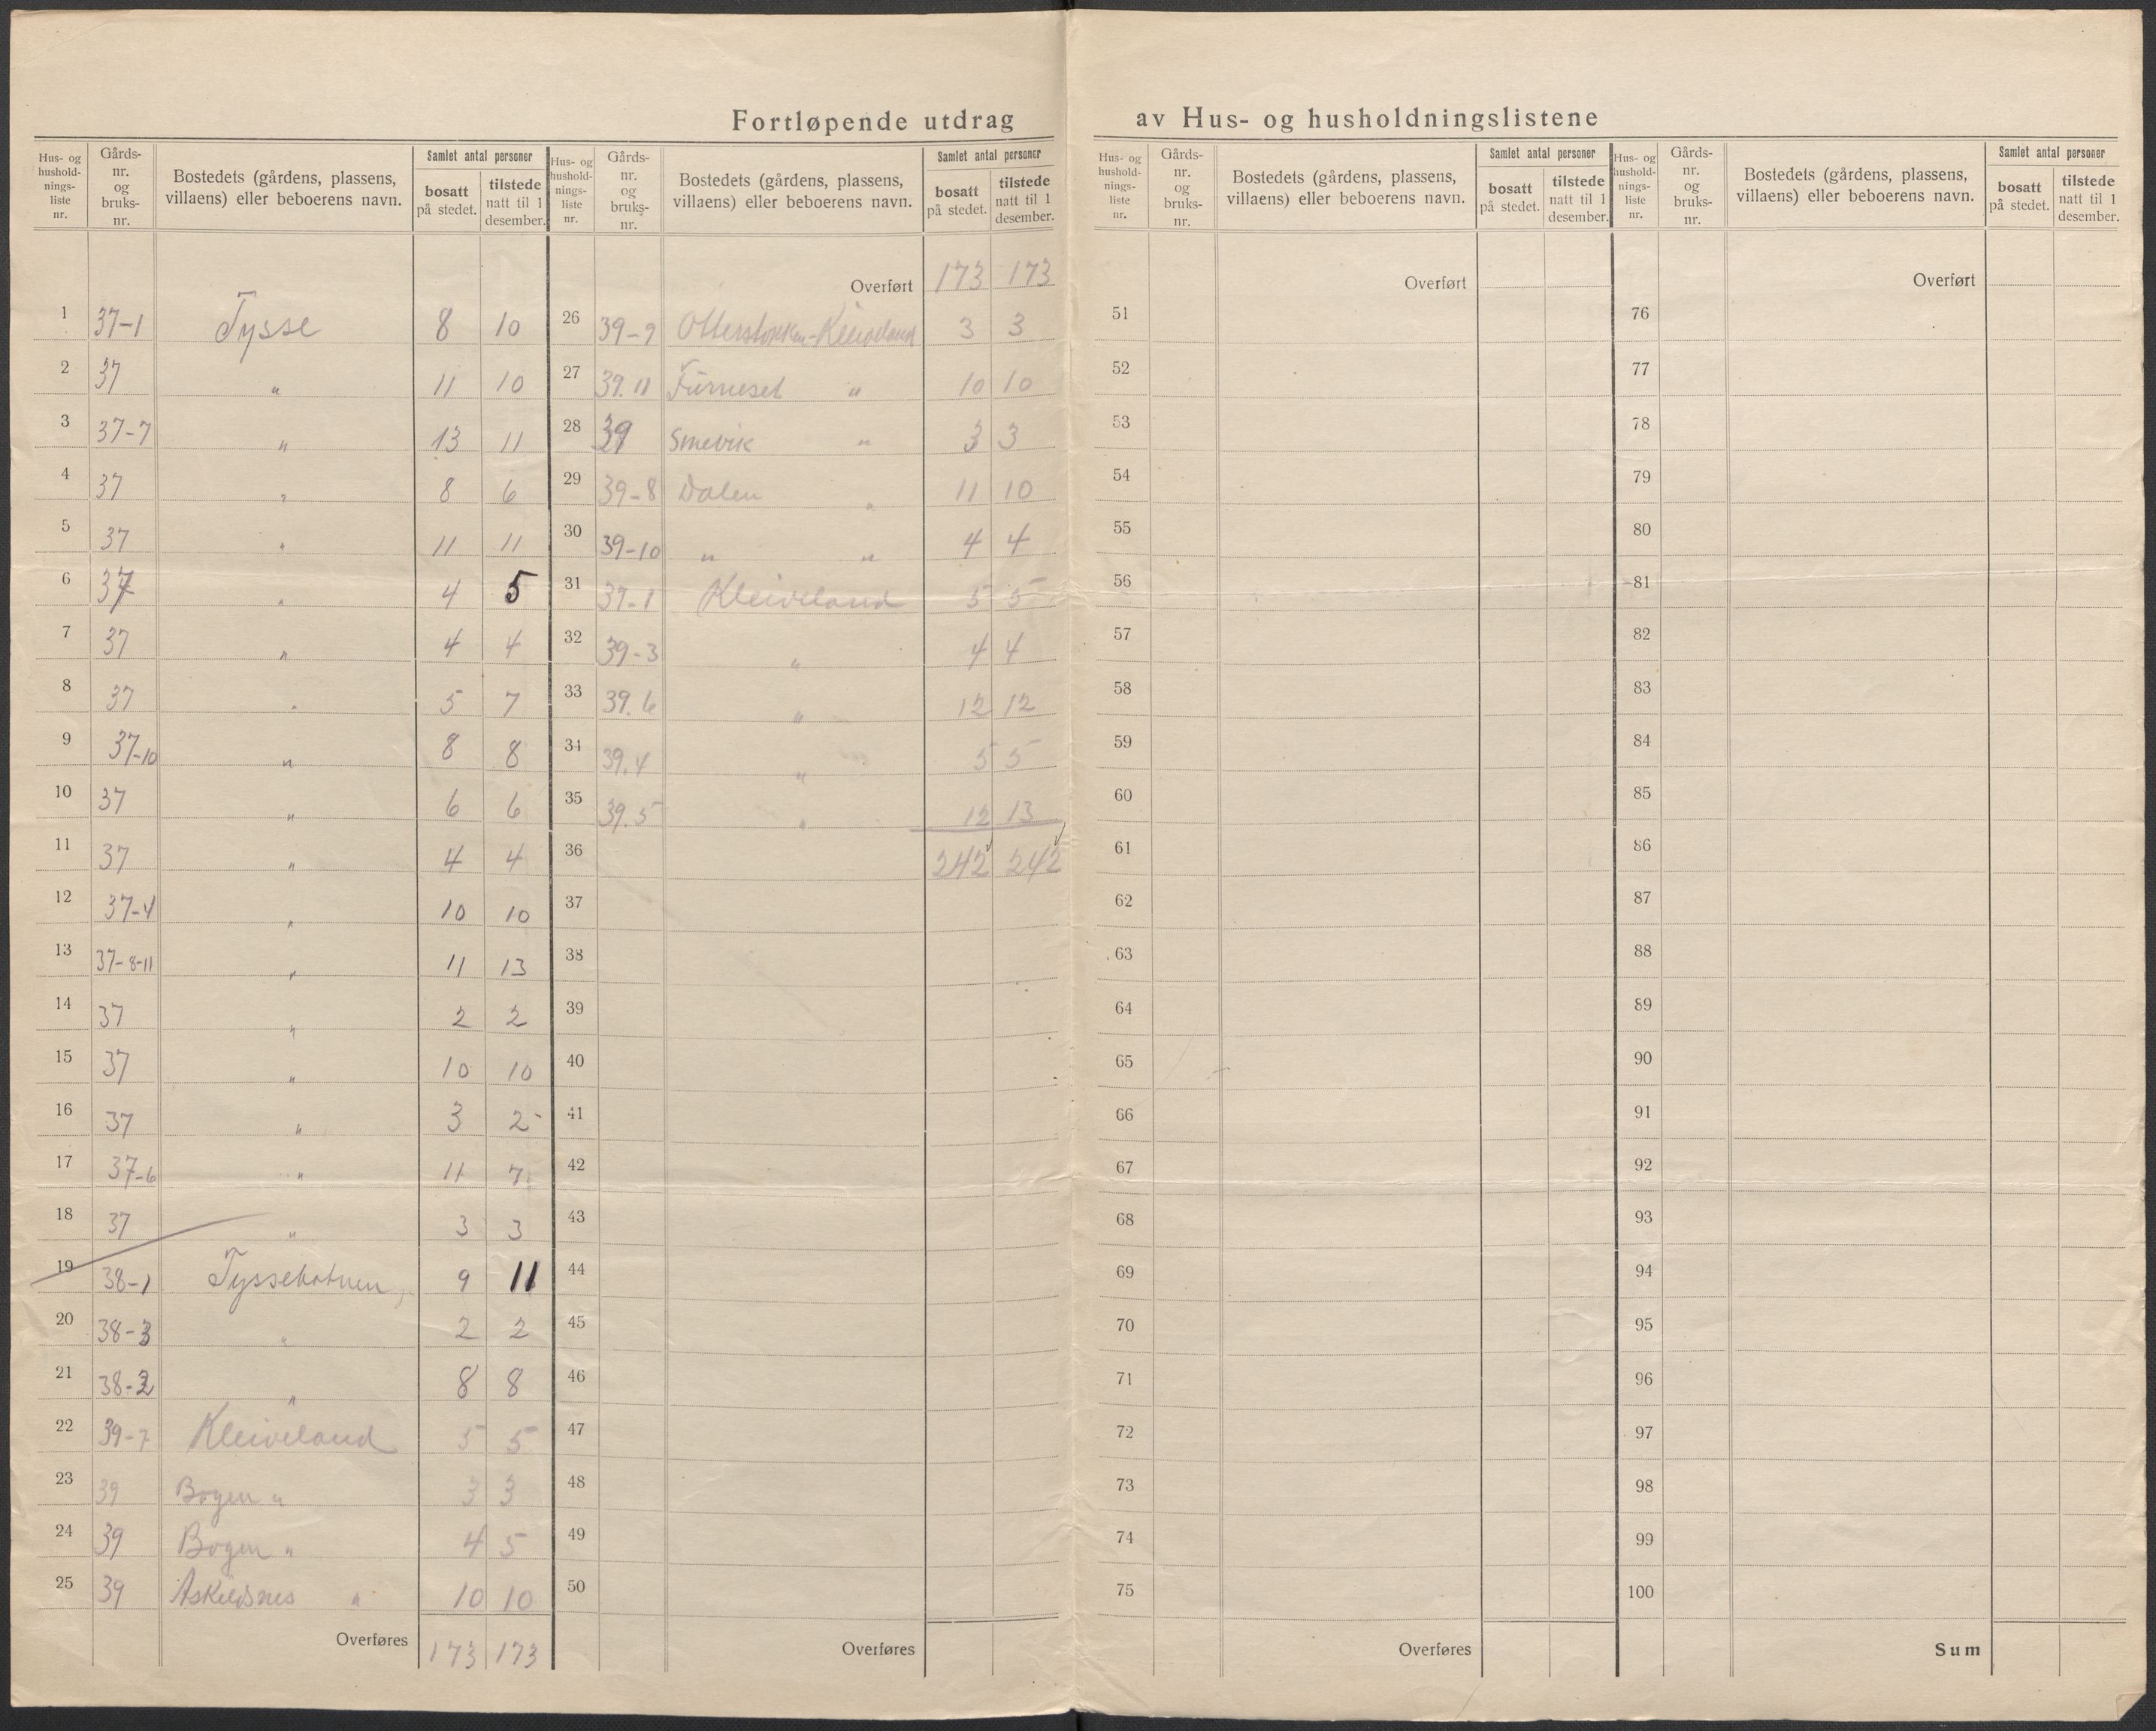 Fortløpende utdrag av Hus- og husholdningslistene
Hus- og hushold- nings- liste nr. | Gårds- nr. og bruks- nr. | Bostedets (gårdens, plassens, villaens) eller beboerens navn. | Samlet antal personer | bosatt på stedet. | tilstede natt til 1 desember.
1 37-1 Tysse 8 10
2 37 " 11 10
3 37-7 " 13 11
4 37 " 8 6
5 37 " 11 11
6 37 " 4 5
7 37 " 4 4
8 37 " 5 7
9 37-10 " 8 8
10 37 " 6 6
11 37 " 4 4
12 37-4 " 10 10
13 37-8-11 " 11 13
14 37 " 2 2
15 37 " 10 10
16 37 " 3 2
17 37-6 " 11 7
18 37 " 3 3
19 38-1 Tyssebotnen 9 11
20 38-3 " 2 2
21 38-2 " 8 8
22 39-7 Kleiveland 5 5
23 39 Bogen " 3 3
24 39 Bogen " 4 5
25 39 Askeldsnes " 10 10
Overføres 173 173
Hus- og hushold- nings- liste nr. | Gårds- nr. og bruks- nr. | Bostedets (gårdens, plassens, villaens) eller beboerens navn. | Samlet antal personer | bosatt på stedet. | tilstede natt til 1 desember.
Overført 173 173
26 39-9 Otterstokken-Kleiveland 3 3
27 39.11 Furneset " 10 10
28 39 Smevik " 3 3
29 39-8 Dalen " 11 10
30 39-10 " " 4 4
31 39-1 Kleiveland 5 5
32 39-3 " 4 4
33 39.6 " 12 12
34 39.4 " 5 5
35 39.5 " 12 13
36 242 242
37
38
39
40
41
42
43
44
45
46
47
48
49
50
Overføres
Hus- og hushold- nings- liste nr. | Gårds- nr. og bruks- nr. | Bostedets (gårdens, plassens, villaens) eller beboerens navn. | Samlet antal personer | bosatt på stedet. | tilstede natt til 1 desember.
Overført
51
52
53
54
55
56
57
58
59
60
61
62
63
64
65
66
67
68
69
70
71
72
73
74
75
Overføres
Hus- og hushold- nings- liste nr. | Gårds- nr. og bruks- nr. | Bostedets (gårdens, plassens, villaens) eller beboerens navn. | Samlet antal personer | bosatt på stedet. | tilstede natt til 1 desember.
Overført
76
77
78
79
80
81
82
83
84
85
86
87
88
89
90
91
92
93
94
95
96
97
98
99
100
Sum